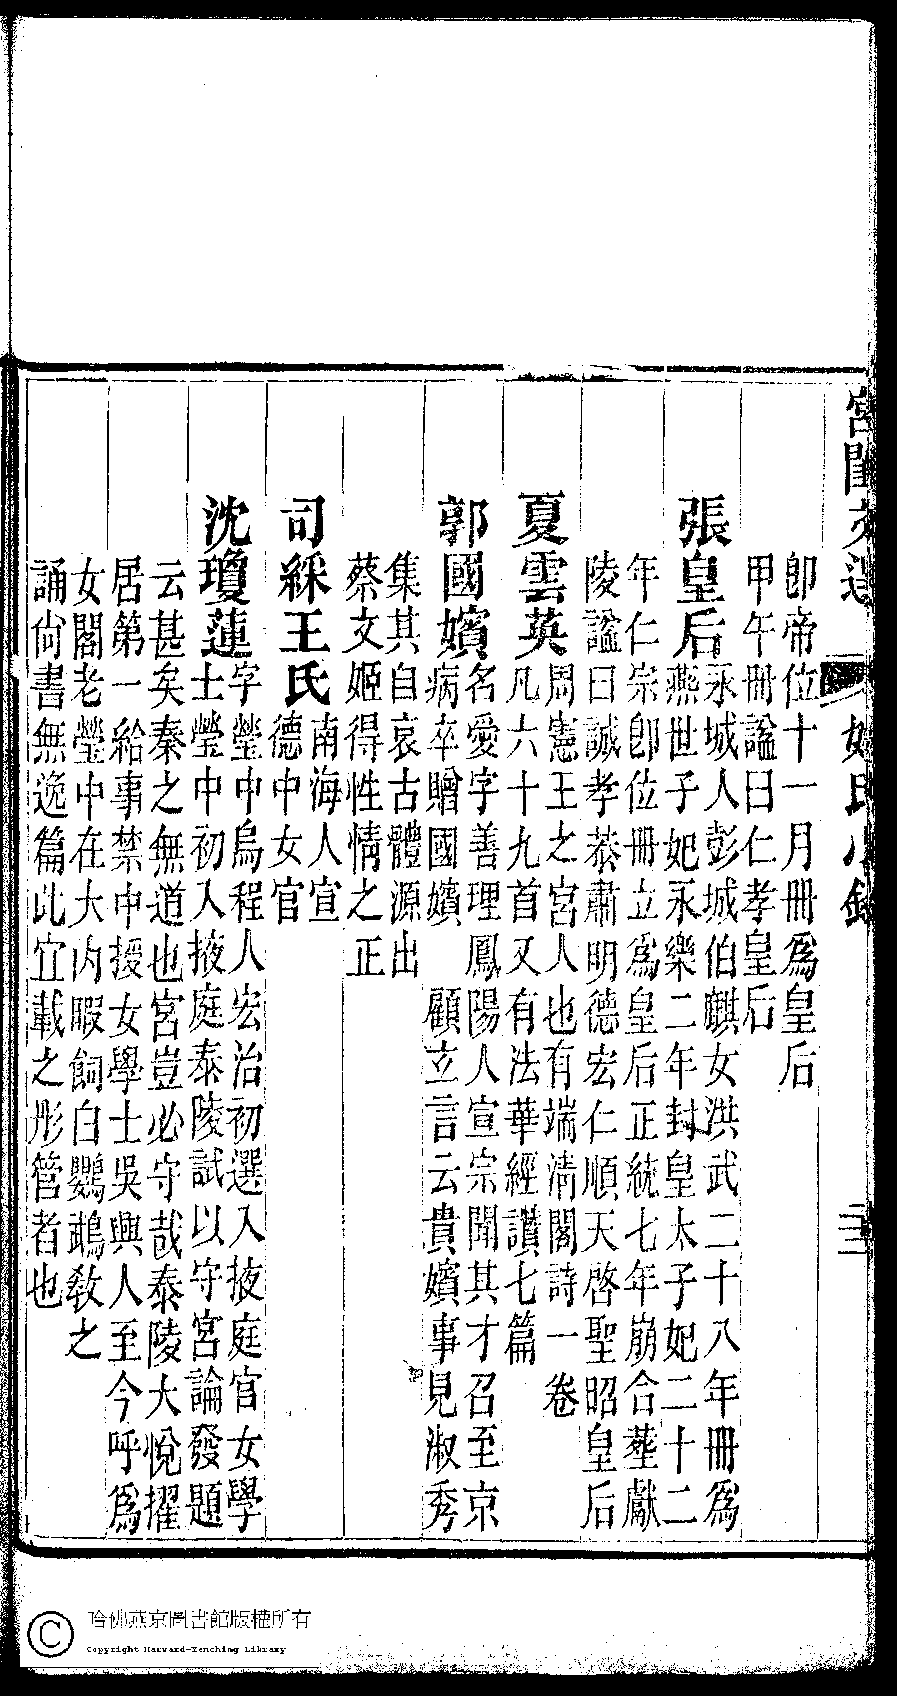 宮閨文選 姓氏小錄 二
卽帝位十一月冊爲皇后
甲午冊謚曰仁孝皇后
張皇后
永城人彭城伯麒女洪武二十八年冊爲
燕世子妃永樂二年封皇太子妃二十二
年仁宗卽位冊立爲皇后正統七年崩合葬獻
陵謚曰誠孝恭肅明德宏仁順天啓聖昭皇后
夏雲英
周憲王之宮人也有端清閣詩一卷
凡六十九首又有法華經讚七篇
郭國嬪
名愛字善理鳳陽人宣宗聞其才召至京
病卒贈國嬪 顧立言云貴嬪事見淑秀
集其自哀古體源出
蔡文姬得性情之正
司綵王氏
南海人宣
德中女官
沈瓊蓮
字瑩中烏程人宏治初選入掖庭官女學
士瑩中初入掖庭泰陵試以守宮論發題
云甚矣秦之無道也宮豈必守哉泰陵大悅擢
居第一給事禁中授女學士吳興人至今呼爲
女閣老瑩中在大內暇飼白鸚鵡敎之
誦尙書無逸篇此宜載之彤管者也
哈佛燕京圖書館版權所有
Copyright Harvard-Yenching Library